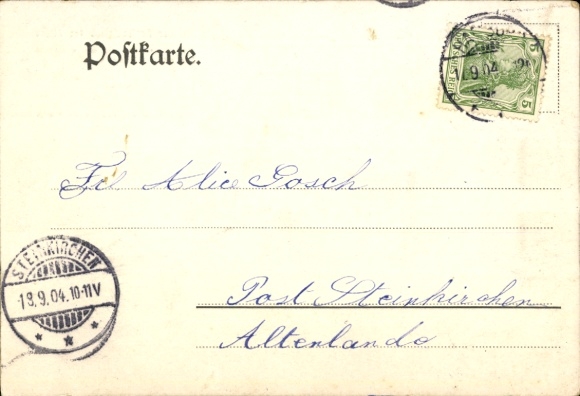 Postkarte.
.9.04
5
5
Frl Alice Gosch
STEINKIRCHEN
18.9.04.10-11V
Post Steinkirchen
Altenlande